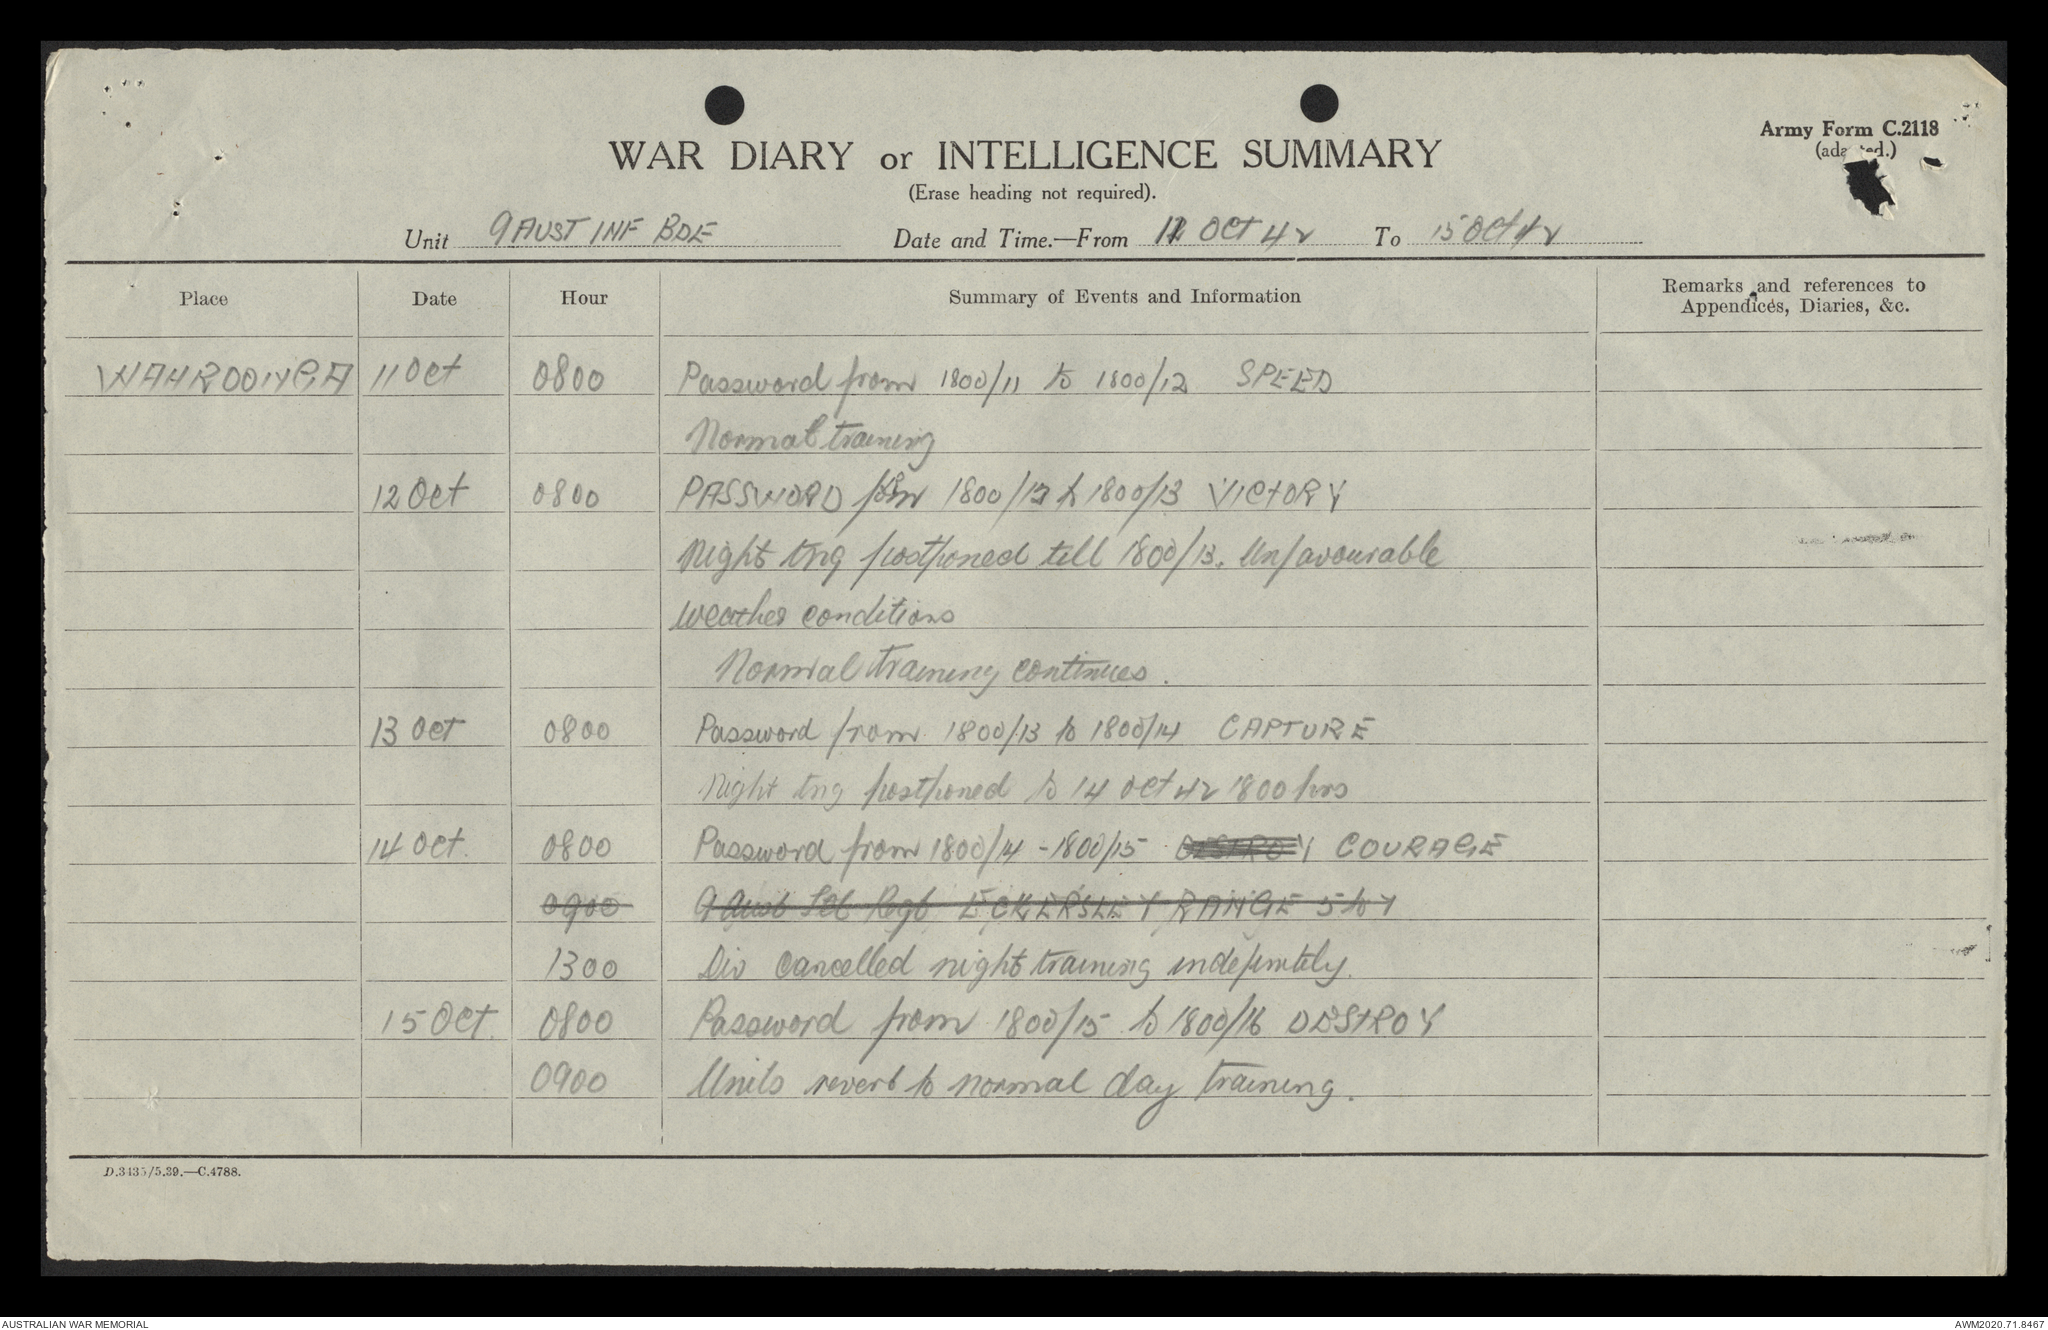 Army Form C.2118
(adapted.)
WAR DIARY or INTELLIGENCE SUMMARY
(Erase heading not required).
Unit 9 AUST INF BDE Date and Time.—From 11 OCT 42 To 15 OCT 42
Place Date Hour Summary of Events and Information Remarks and references to
Appendices, Diaries, &c.
WAHROONGA 11 Oct 0800 Password from 1800/11 to 1800/12 SPEED
Normal training
12 Oct 0800 PASSWORD from 1800/12 to 1800/13 VICTORY
Night tng postponed till 1800/13. Unfavourable
weather conditions
Normal training continues.
13 Oct 0800 Password from 1800/13 to 1800/14 CAPTURE
Night tng postponed to 14 Oct 42 1800 hrs
14 Oct. 0800 Password from 1800/14 - 1800/15 DESTROY COURAGE
0900 9 Aust Regt ECKERSLEY RANGE
1300 Div cancelled night training indefinitely.
15 Oct. 0800 Password from 1800/15 to 1800/16 DESTROY
0900 Units revert to normal day training.
D.3435/5.39.—C.4788.
AUSTRALIAN WAR MEMORIAL AWM2020.71.8467